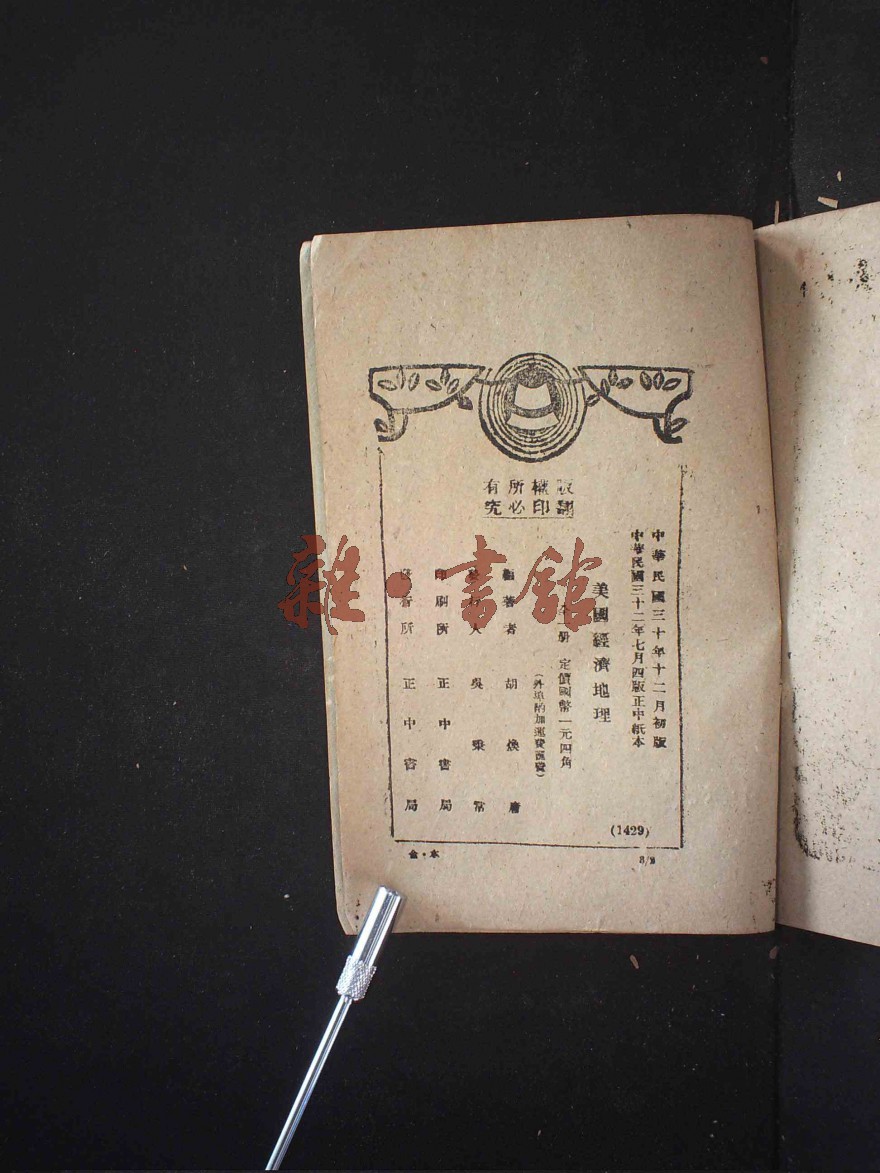 版權所有
翻印必究
中華民國三十年十二月初版
中華民國三十二年七月四版正中紙本
美國經濟地理
全一册 定價國幣一元四角
(外埠酌加運費匯費)
編著者 胡煥庸
發行人 吳秉常
印刷所 正中書局
發行所 正中書局
(1429)
金·本
雜·書館